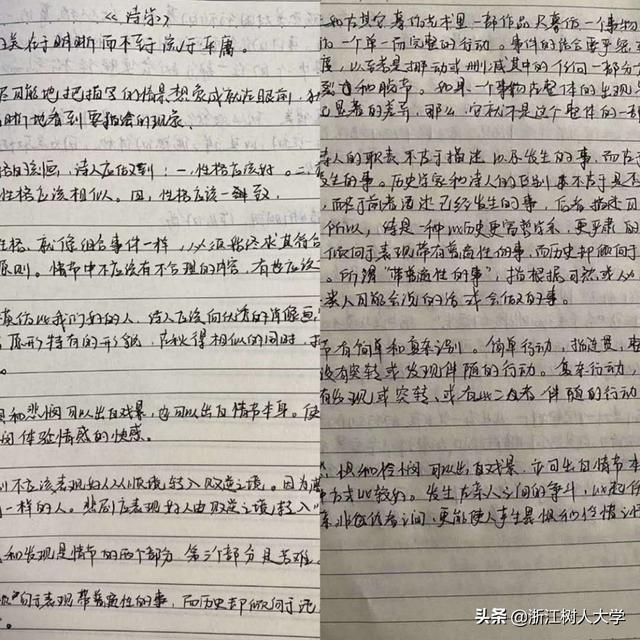 《诗学》
的美在于明晰而不至于流于平庸。
尽可能地把描写的情景想象成就在眼前，
清晰地看到要描绘的现象。
性格的刻画，诗人应做到：一，性格应该好。二，
性格应该相似。四，性格应该一致。
性格，就像组合事件一样，必须始终求其符合
原则。情节中不应该有不合理的内容，
模仿比我们好的人，诗人应该向优秀的肖像画
原形特有的形貌，在求得相似的同时，
恐惧和悲悯可以出自戏景，亦可以出自情节本身。
体验情感的快感。
不应该表现好人从顺境转入败逆之境。因为
一样的人。悲剧应表现好人由败逆之境转入
和发现是情节的两个部分，第三个部分是苦难。
倾向于表现带普遍性的事，而历史却倾向于记
和在其它摹仿艺术里一部作品只摹仿一个事物
的一个单一而完整的行动。事件的结合要严密
度，以至若是挪动或删减其中的任何一部分
裂和脱节。如果一个事物在整体的出现
显著的差异，那么，它就不是这个整体的一部
诗人的职责不在于描述已经发生的事，而在于
发生的事。历史学家和诗人的区别不在于是否
而在于前者记述已经发生的事，后者描述可
所以，诗是一种比历史更富哲学性、更严肃的
倾向于表现带有普遍性的事，而历史却倾向于
。所谓“带普遍性的事”，指根据可然或必
类人可能会说的话或会做的事。
节有简单和复杂之别。简单行动，指连贯、
没有突转或发现伴随的行动。复杂行动，
有发现或突转、或有此二者伴随的行动
恐惧和怜悯可以出自戏景，亦可出自情节本
方式比较好。发生在亲人之间的争斗，比起
非仇敌者之间，更能使人产生恐惧和怜悯之
头条 @浙江树人大学